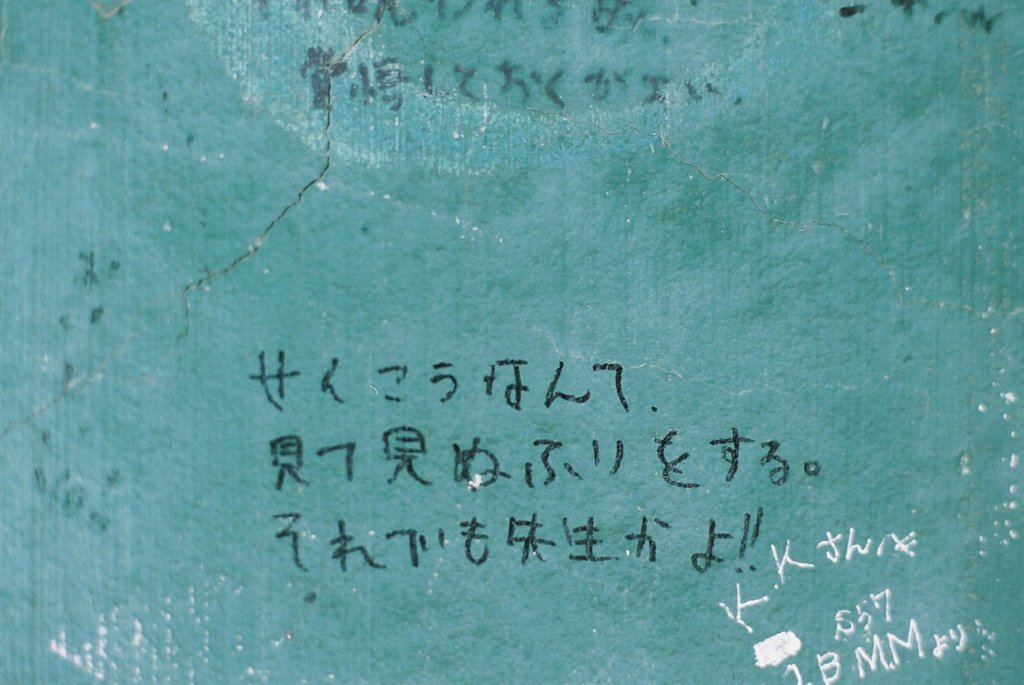 呪われるぜ。
覚悟しておくがよい.
せんこうなんて.
見て見ぬふりをする。
それでも先生かよ!!
K.Kさんへ
S57
2B M.Mより